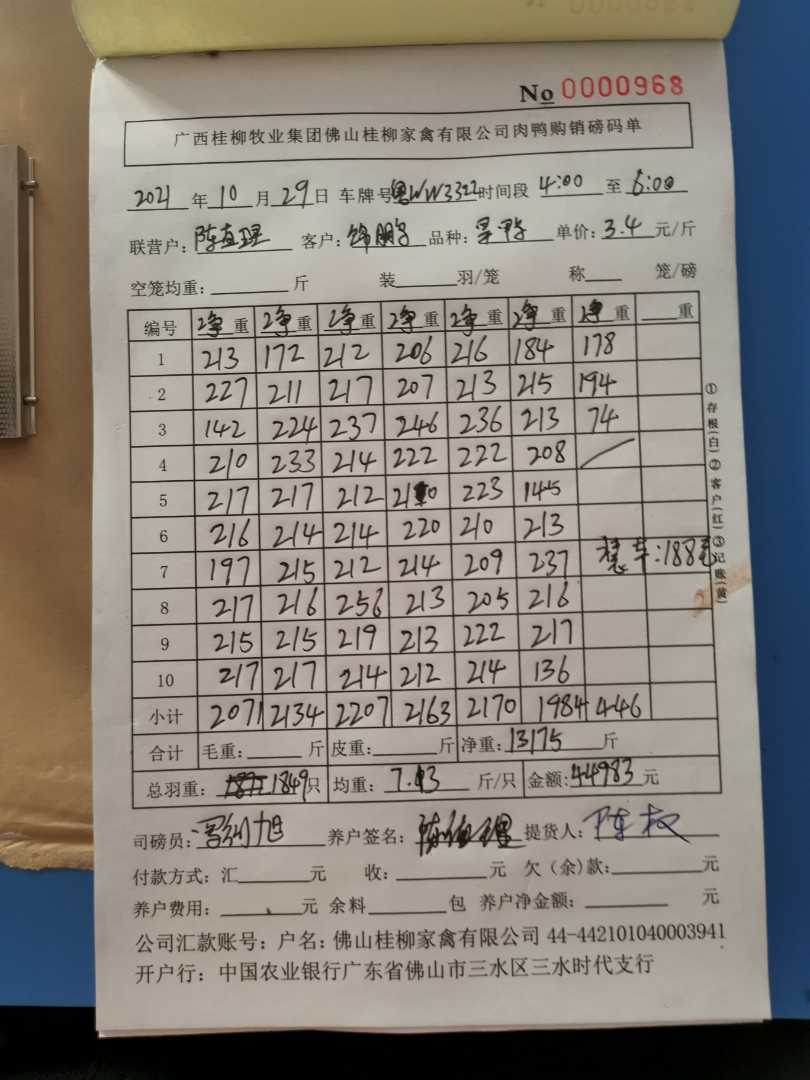 No 0000968
广西桂柳牧业集团佛山桂柳家禽有限公司肉鸭购销磅码单
2021 年 10 月 29 日 车牌号 粤WW3322 时间段 4:00 至 6:00
联营户: 陈直理 客户: 品种: 单价: 3.4 元/斤
空笼均重: 斤 装 羽/笼 称 笼/磅
编号 净重 净重 净重 净重 净重 净重 净重 重
1 213 172 212 206 216 184 178
2 227 211 217 207 213 215 194
3 142 224 237 246 236 213 74
4 210 233 214 222 222 208
5 217 217 212 210 223 145
6 216 214 214 220 210 213
7 197 215 212 214 209 237 :188
8 217 216 256 213 205 216
9 215 215 219 213 222 217
10 217 217 214 212 214 136
小计 2071 2134 2207 2163 2170 1984 446
合计 毛重: 斤 皮重: 斤 净重: 13175 斤
总羽重: 1849 只 均重: 7.13 斤/只 金额: 44983 元
司磅员: 养户签名: 提货人: 陈权
付款方式: 汇 元 收: 元 欠(余)款: 元
养户费用: 元 余料 包 养户净金额: 元
公司汇款账号: 户名: 佛山桂柳家禽有限公司 44-442101040003941
开户行: 中国农业银行广东省佛山市三水区三水时代支行
①存根(白)②客户(红)③记账(黄)